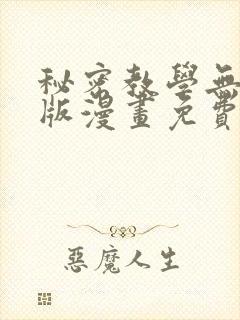 秘密教學無
版漫畫免費
惡魔人生